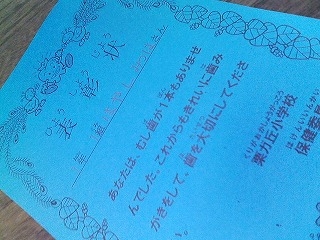 表彰状
年 組
さん
あなたは、むし歯が1本もありませ
んでした。これからもきれいに歯み
がきをして、歯を大切にしてくださ
い。
くりがおかしょうがっこう
栗ガ丘小学校
ほけんいいんかい
保健委員